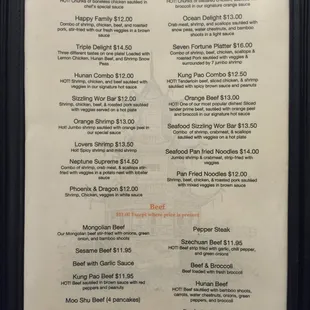 HOT! Chunks of boneless chicken sautéed in
chef's special sauce
Happy Family $12.00
Combo of shrimp, chicken, beef, and roasted
pork, stir-fried with our fresh veggies in a brown
sauce
Triple Delight $14.50
Three different tastes on one plate! Loaded with
Lemon Chicken, Hunan Beef, and Shrimp Snow
Peas
Hunan Combo $12.00
HOT! Shrimp, chicken, and beef sautéed with
veggies in our signature hot sauce
Sizzling Wor Bar $12.00
Shrimp, chicken, beef, & roasted pork sautéed
with veggies served on a hot plate
Orange Shrimp $13.00
Hot! Jumbo shrimp sautéed with orange peel in our
special sauce
Lovers Shrimp $13.50
Hot! Spicy shrimp and mild shrimp
Neptune Supreme $14.50
Combo of shrimp, crab meat, & scallops stir-
fried with veggies in a potato nest with lobster
sauce
Phoenix & Dragon $12.00
Shrimp, Chicken, veggies in white sauce
Ocean Delight $13.00
Crab meat, shrimp, and scallops sautéed with
snow peas, water chestnuts, and bamboo
shoots in a light sauce
Seven Fortune Platter $16.00
Combo of shrimp, beef, chicken, scallops &
roasted Pork sautéed with veggies &
surrounded by 7 jumbo shrimp
Kung Pao Combo $12.50
HOT! Tenderloin beef, sliced chicken, & shrimp
sautéed with spicy peanuts and veggies in
brown sauce
Orange Beef $13.00
HOT! One of our most popular dishes! Sliced
tender prime beef, sautéed with orange peel
and broccoli in our signature hot sauce
Seafood Sizzling Wor Bar $13.50
Combo of shrimp, crabmeat, & scallops
sautéed with veggies in white sauce
Seafood Pan fried Noodles $14.00
Jumbo shrimp & crabmeat, stir-fried with
veggies
Pan Fried Noodles $12.00
Shrimp, beef, chicken, & roasted pork sautéed
with mixed veggies in brown sauce
Beef
$11.00 Except where price is present
Mongolian Beef
Our Mongolian beef stir-fried with onions, green
onion, and bamboo shoots
Sesame Beef $11.95
Beef with Garlic Sauce
Kung Pao Beef $11.95
HOT! Beef sautéed in brown sauce with red
peppers and peanuts
Moo Shu Beef (4 pancakes)
Pepper Steak
Szechuan Beef $11.95
HOT! Beef strip fried with garlic, chili pepper,
and green onions
Beef & Broccoli
Beef toasted with fresh broccoli
Hunan Beef
HOT! Beef sautéed with bamboo shoots,
carrots, water chestnuts, onions, green peppers,
and broccoli